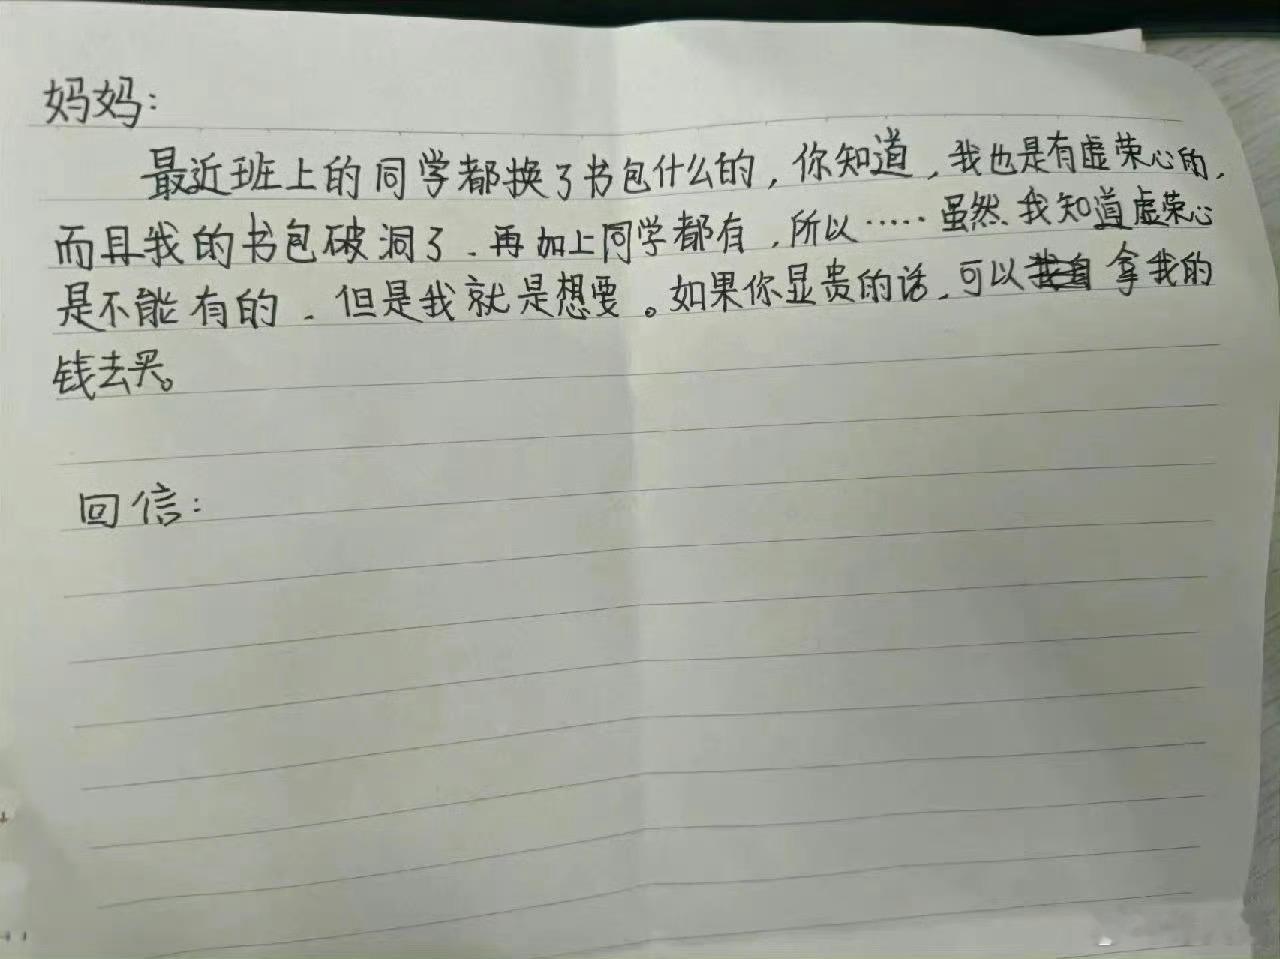 妈妈：
最近班上的同学都换了书包什么的，你知道，我也是有虚荣心的，
而且我的书包破洞了、再加上同学都有，所以……虽然、我知道虚荣心
是不能有的、但是我就是想要。如果你显贵的话，可以拿我的
钱去买。
回信：